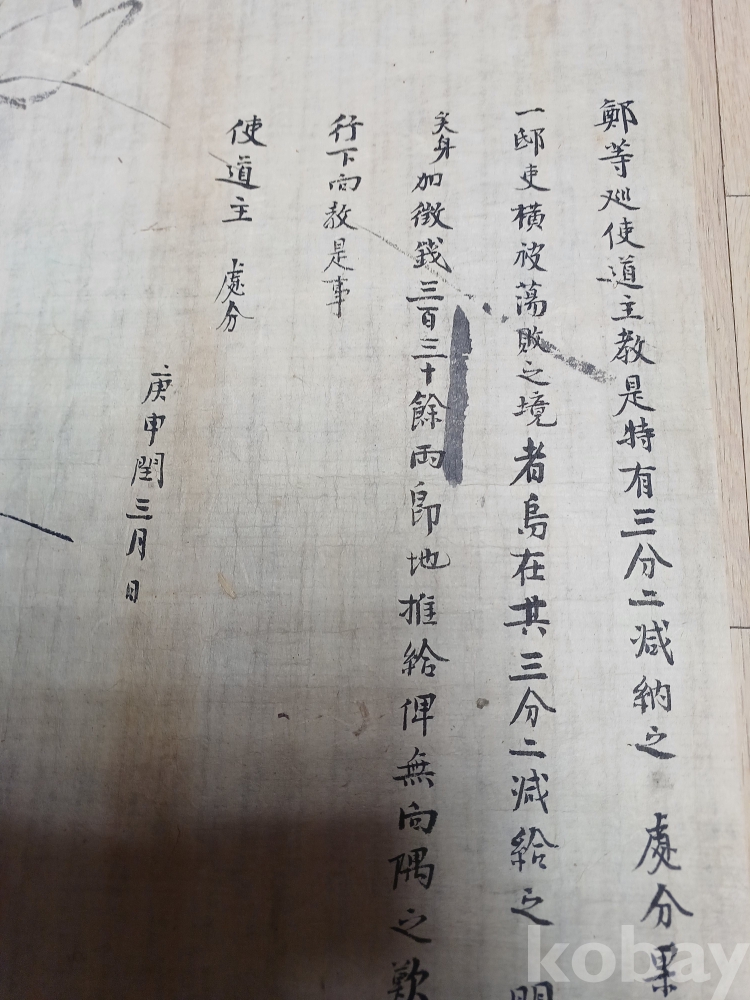 鄭等巡使道主教是特有三分二減納之 處分果
一邸吏橫被蕩敗之境者烏在其三分二減給之 明
矣身加徵錢三百三十餘兩卽地推給俾無向隅之歎
行下向教是事
使道主 處分
庚申閏三月日
kobay